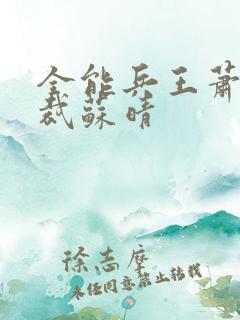 全能兵王蕭
裁蘇晴
徐志摩
未经同意禁止转载